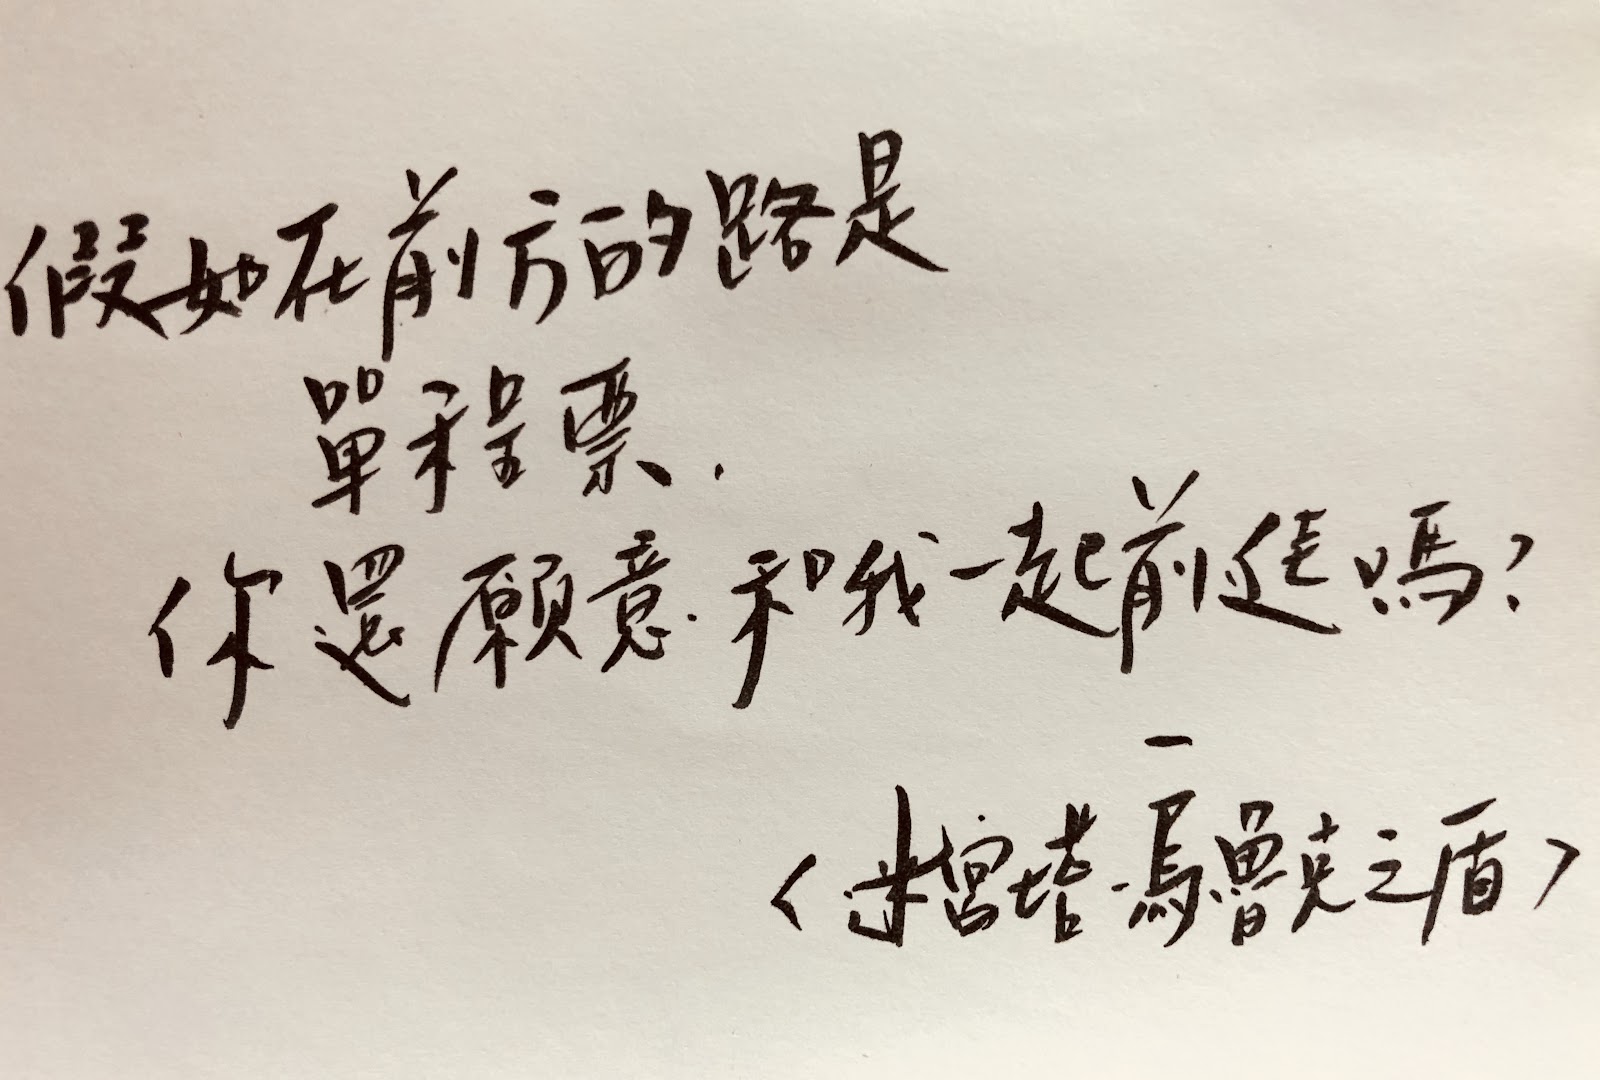 假如在前方的路是
單程票.
你還願意.和我一起前進嗎?
—
〈米宮塔.馬魯克之盾〉